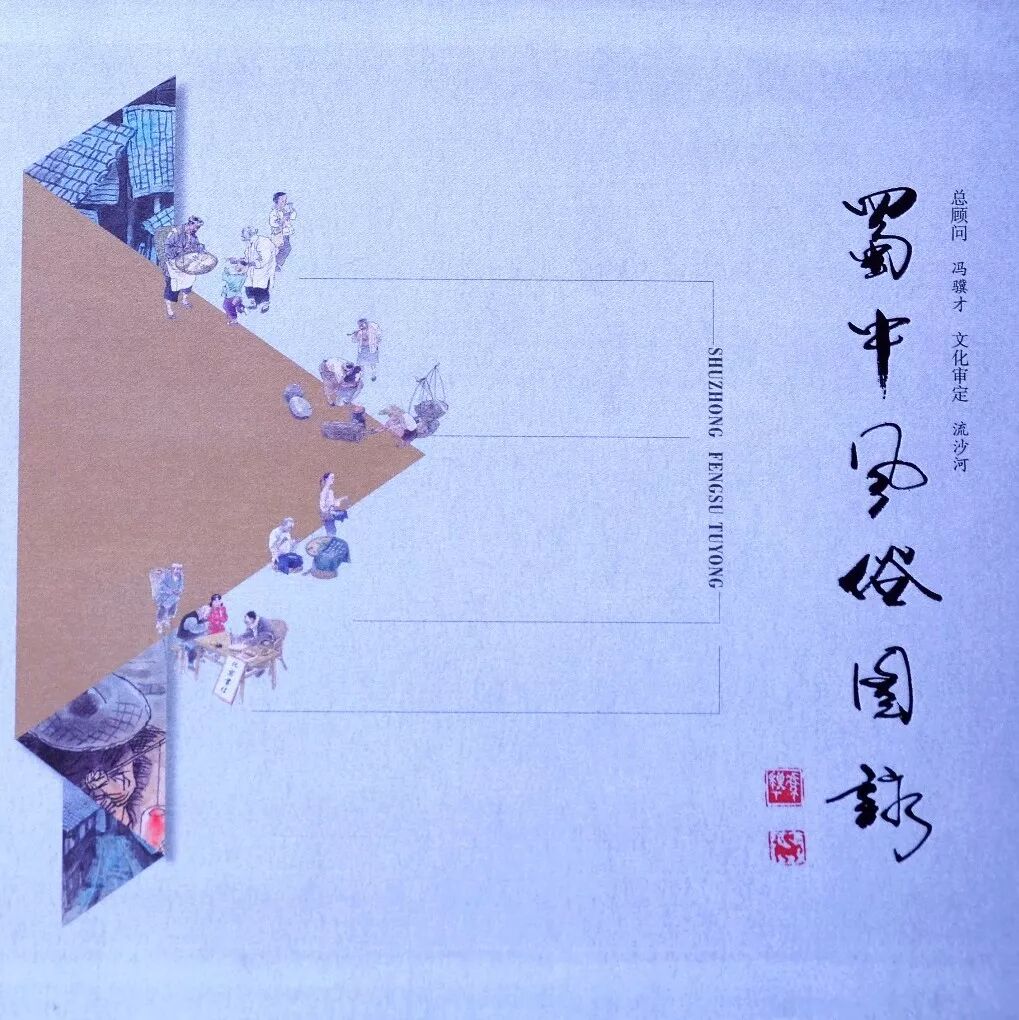 总顾问 冯骥才 文化审定 流沙河
蜀中风俗图詠
SHUZHONG FENGSU TUYONG
代写书信